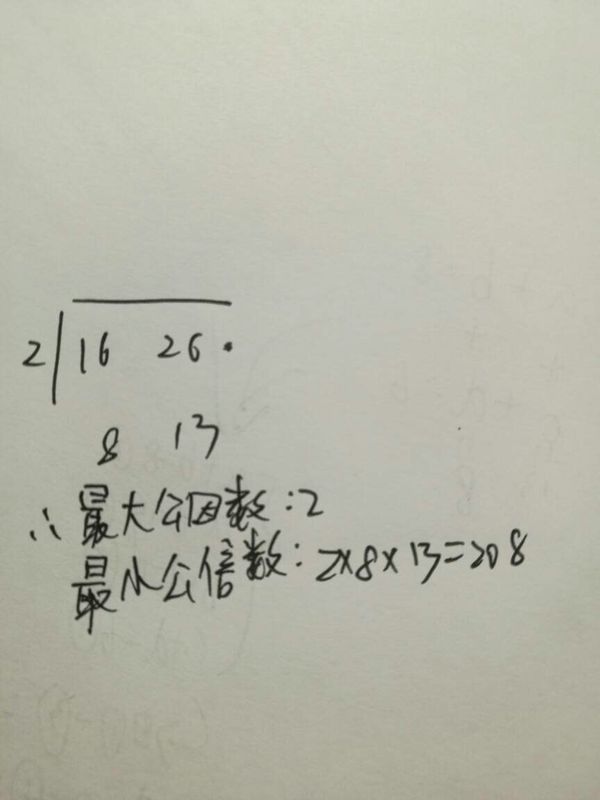 2 16 26.
8 13
∴最大公因数:2
最小公倍数:2×8×13=208